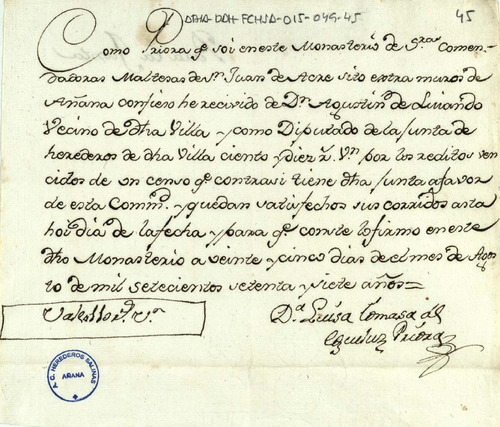 DAHA-DDH-FCHSD-015-049-45
45
Como Priora q.e soi en este Monasterio de S.ras Comen-
dadoras Maltesas de S.n Juan de Acre sito extra muros de
Añana confieso he recivido de D.n Agustin de
Vecino de dha Villa y como Diputado de la Junta de
herederos de dha Villa ciento y diez r.s V.n por los reditos ven-
cidos de un censo q.e contra si tiene dha Junta a favor
de esta Comm.d y quedan satisfechos sus corridos asta
hoi dia de la fecha y para q.e conste lo firmo en este
dho Monasterio a veinte y cinco dias de el mes de Agos-
to de mil setecientos setenta y siete años=
Vale 110 r.s V.n
D.a Luisa Tomasa de
Priora
A.C. HEREDEROS SALINAS
AÑANA